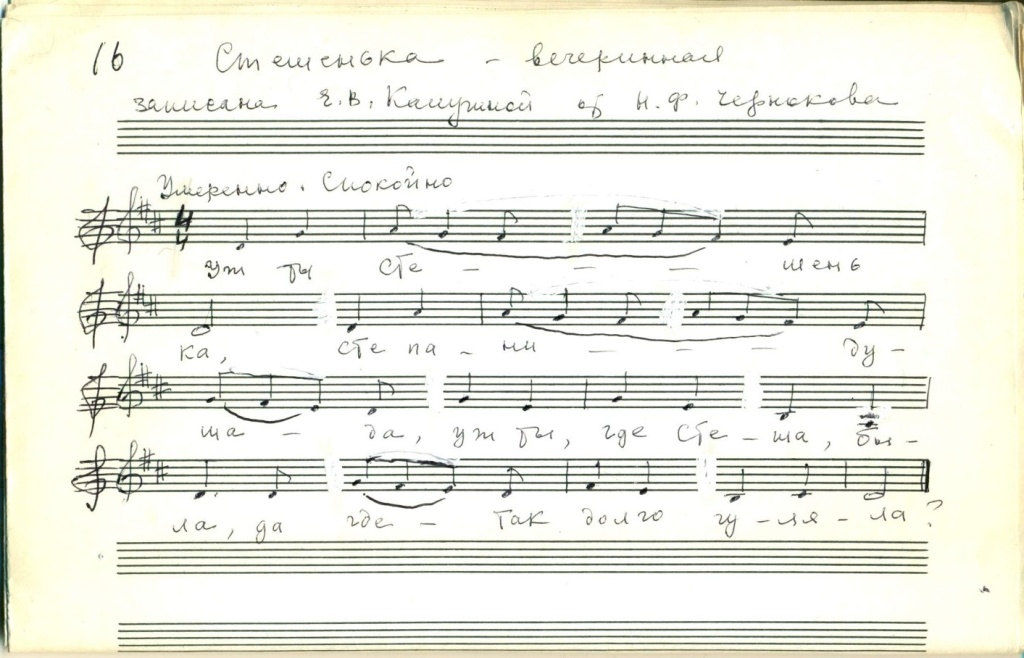 16 Стешенька - вечеринная
записана Е. В. Капушиной от Н. Ф. Чернокова
Умеренно. Спокойно
4
4
Уж ты Сте - - - шень
ка, Сте па - ни - - - ду -
ша - да, уж ты, где Сте - ша, бы -
ла, да где - так долго гу - ля - ла?